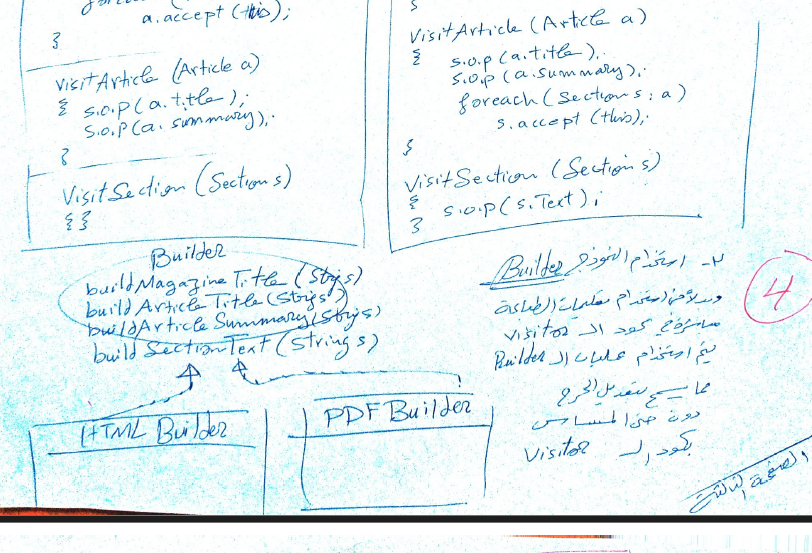 a.accept(this);
}
visitArticle (Article a)
{ s.o.p(a.title);
s.o.p(a.summary);
}
VisitSection (Section s)
{ }
}
VisitArticle (Article a)
{ s.o.p(a.title);
s.o.p(a.summary);
foreach(Section s : a)
s.accept(this);
}
VisitSection (Section s)
{ s.o.p(s.Text);
}
Builder
buildMagazineTitle (String s)
build ArticleTitle (String s)
buildArticle Summary (String s)
build SectionText (String s)
HTML Builder
PDF Builder
٢- استخدام النموذج Builder
وبدلا من استخدام تعليمات الطباعة
مباشرة في كود الـ visitor
يتم استخدام عمليات الـ Builder
مما يسمح بتعديل الخرج
دون حتى المساس
بكود الـ Visitor
4
الصفحة الثالثة